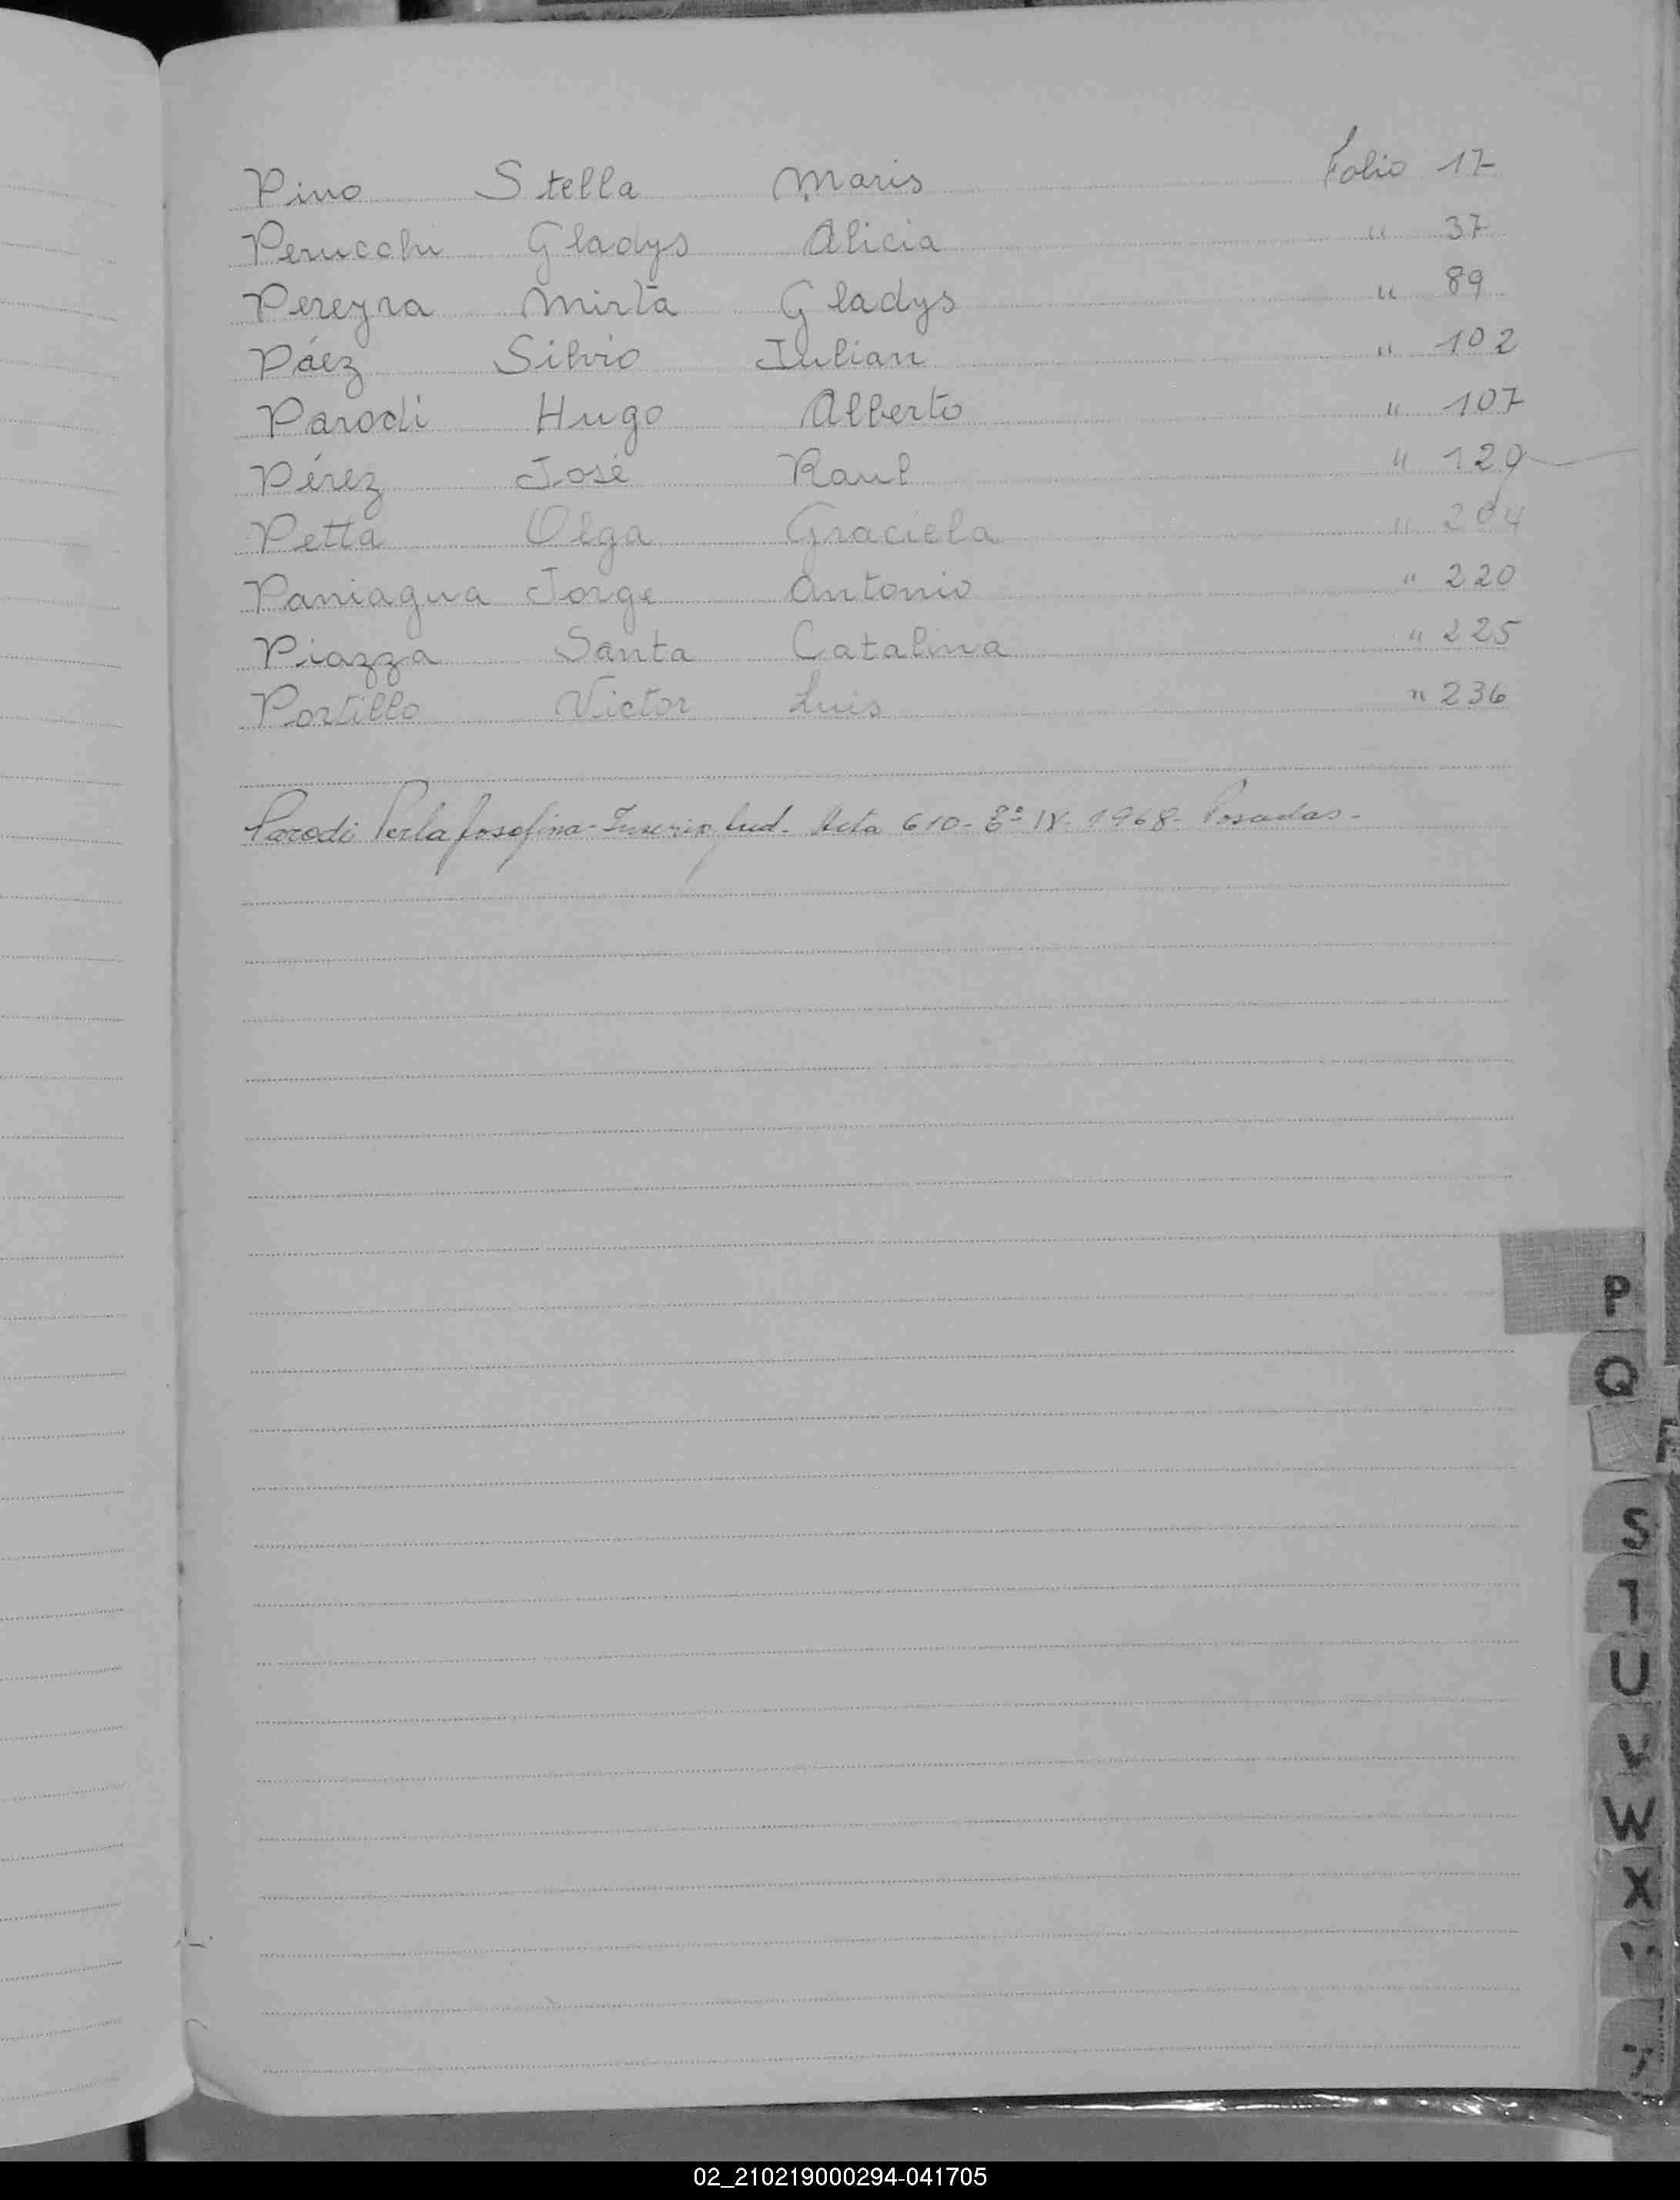 Pino Stella Maris Folio 17
Perucchi Gladys Alicia " 37
Pereyra Mirta Gladys " 89
Páez Silvio Julian " 102
Parodi Hugo Alberto " 107
Pérez José Raul " 129
Petta Olga Graciela " 204
Paniagua Jorge Antonio " 220
Piazza Santa Catalina " 225
Portillo Victor Luis " 236
Parodi Perla Josefina - Inscrip Jud. Acta 610 - 1968 - Posadas -
P
Q
S
T
U
V
W
X
02_210219000294-041705